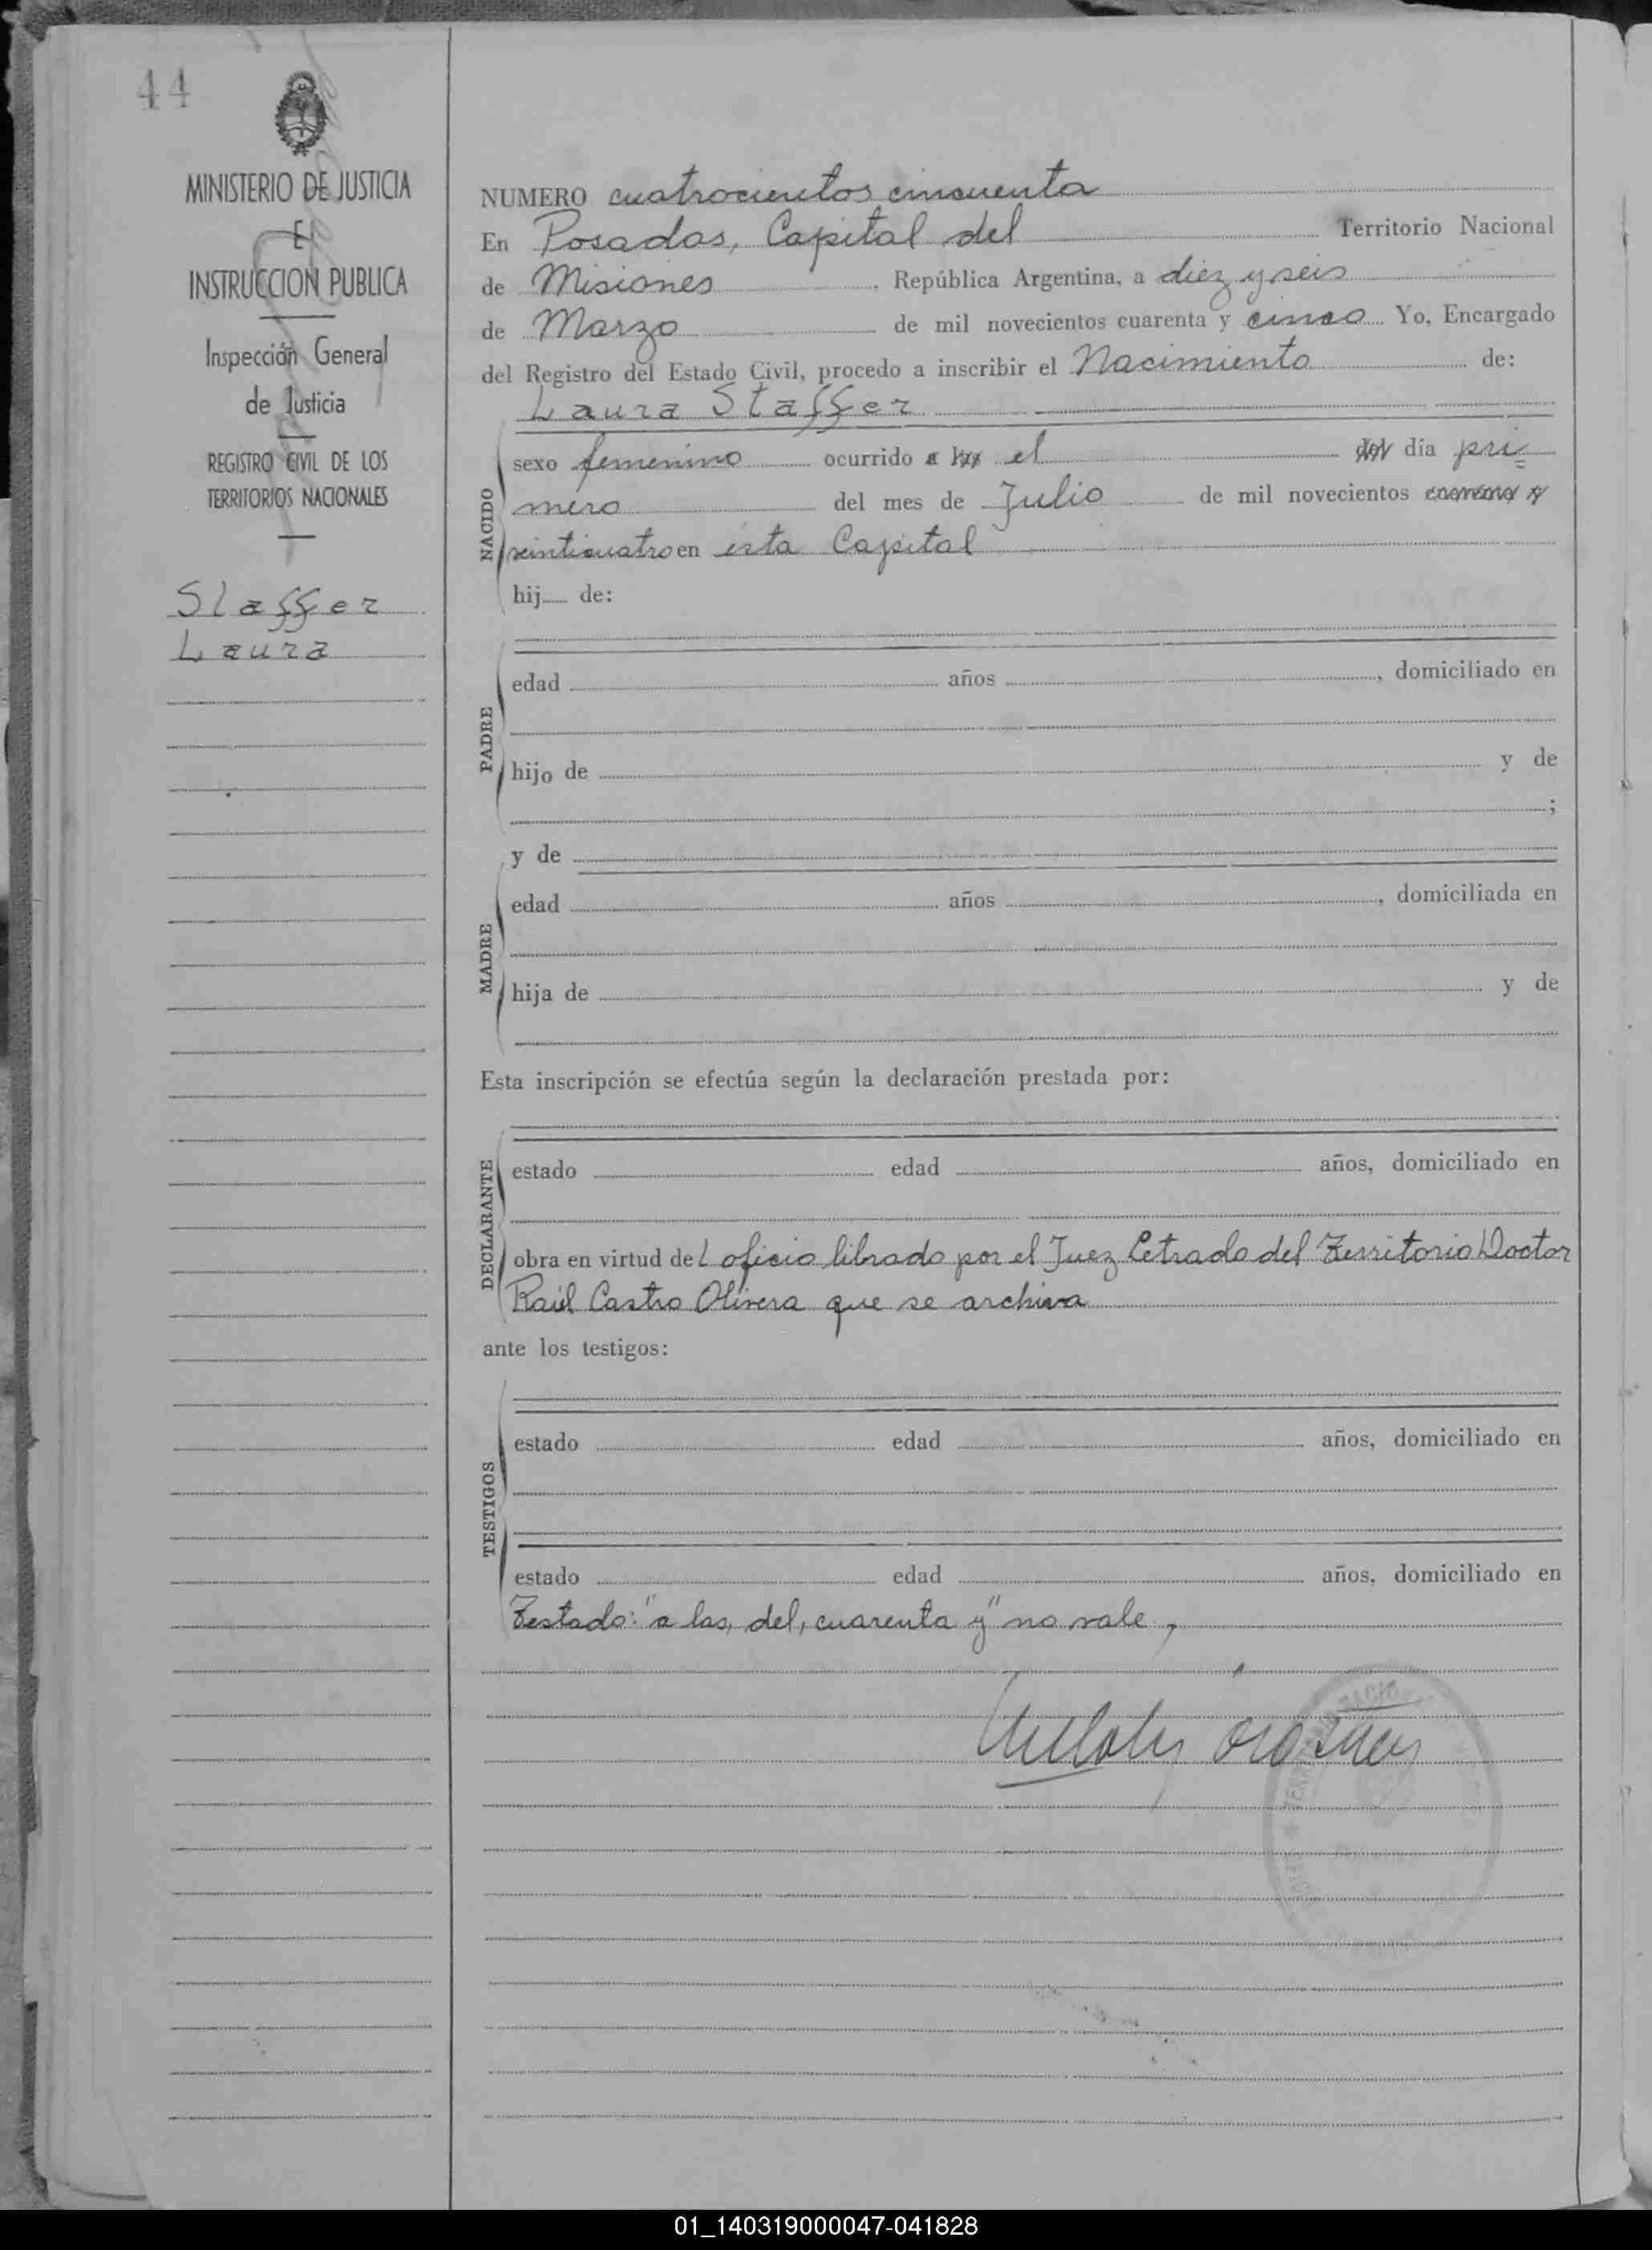 44
MINISTERIO DE JUSTICIA
E
INSTRUCCION PUBLICA
Inspección General
de Justicia
REGISTRO CIVIL DE LOS
TERRITORIOS NACIONALES
Staffer
Laura
NUMERO cuatrocientos cincuenta
En Posadas, Capital del Territorio Nacional
de Misiones, República Argentina, a diez y seis
de Marzo de mil novecientos cuarenta y cinco Yo, Encargado
del Registro del Estado Civil, procedo a inscribir el Nacimiento de:
Laura Staffer
NACIDO
sexo femenino ocurrido a las el del día pri=
mero del mes de Julio de mil novecientos cuarenta y
veinticuatro en esta Capital
hij de:
PADRE
edad años, domiciliado en
hijo de y de
;
y de
MADRE
edad años, domiciliada en
hija de y de
Esta inscripción se efectúa según la declaración prestada por:
DECLARANTE
estado edad años, domiciliado en
obra en virtud del oficio librado por el Juez Letrado del Territorio Doctor
Raúl Castro Olivera que se archiva
ante los testigos:
TESTIGOS
estado edad años, domiciliado en
estado edad años, domiciliado en
Testado: "a las, del, cuarenta y" no vale,
01_140319000047-041828